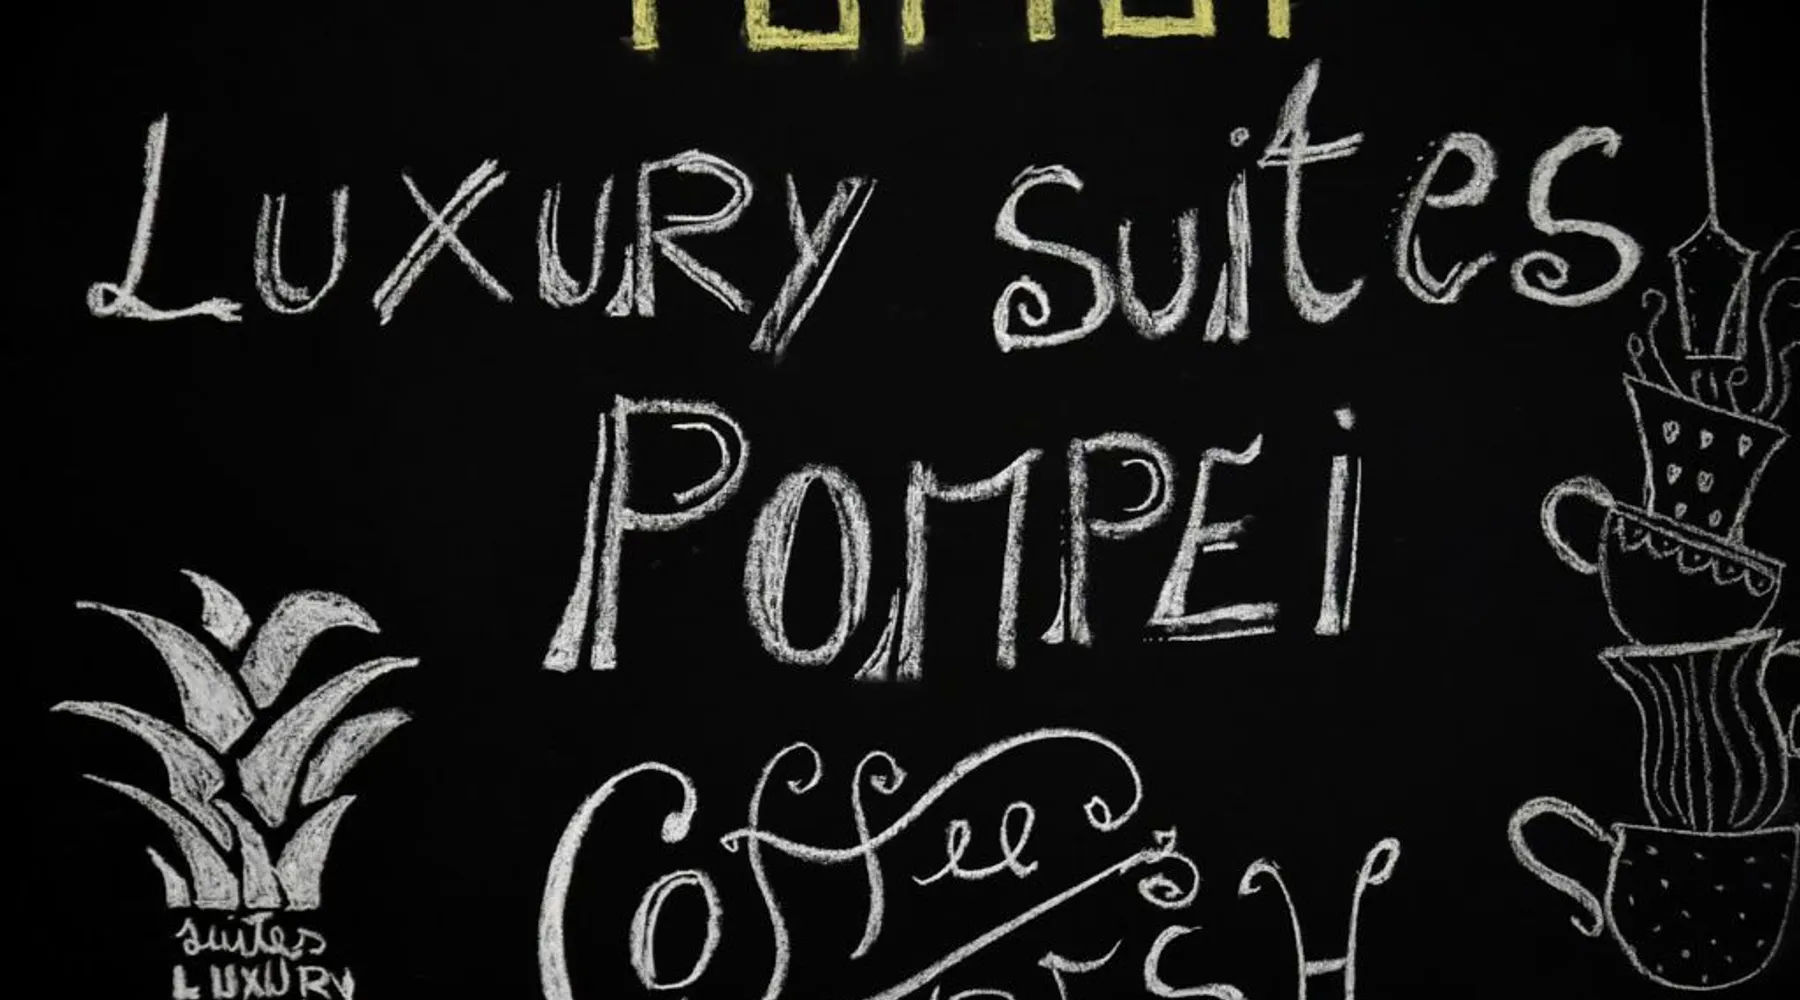 LUXURY suites
POMPEi
Coffee's
suites
LUXURY